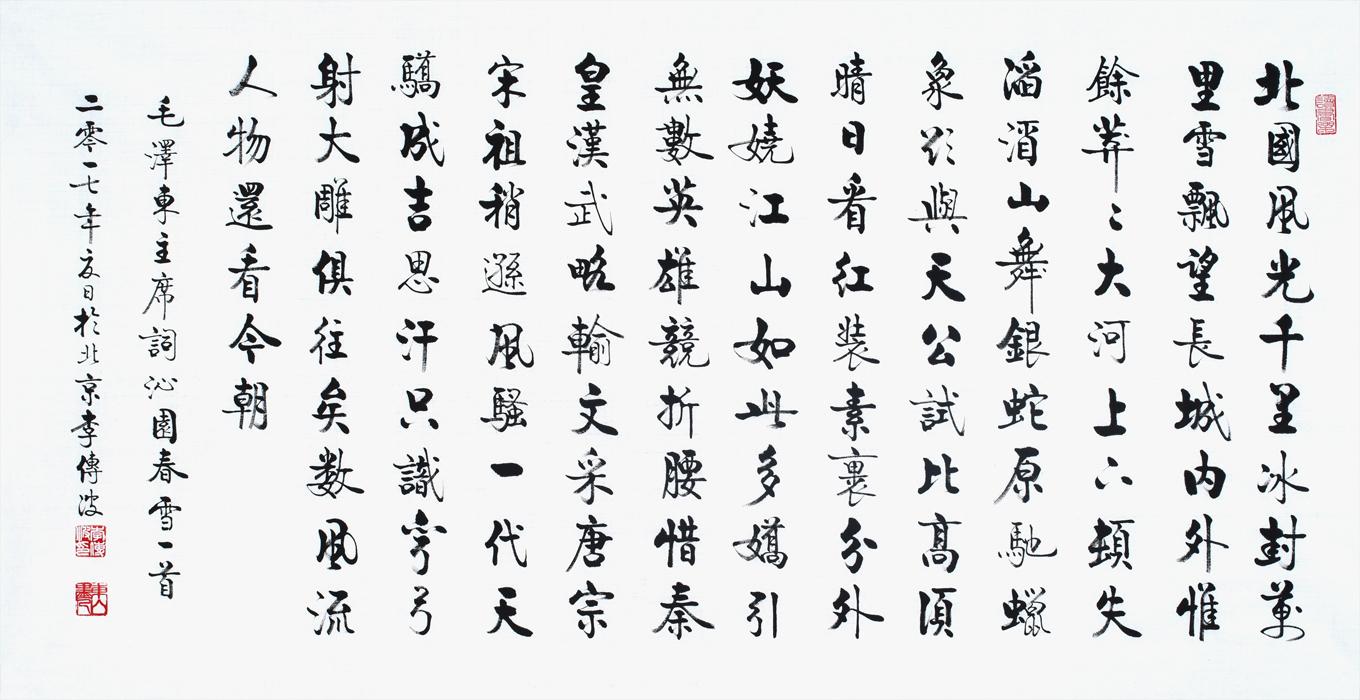 北國風光千里冰封萬
里雪飄望長城内外惟
餘莽〻大河上下頓失
滔滔山舞銀蛇原馳蠟
象欲與天公試比高須
晴日看紅裝素裹分外
妖嬈江山如此多嬌引
無數英雄競折腰惜秦
皇漢武略輸文采唐宗
宋祖稍遜風騷一代天
驕成吉思汗只識彎弓
射大雕俱往矣数風流
人物還看今朝
毛澤東主席詞沁園春雪一首
二零一七年夏日於北京李傳波